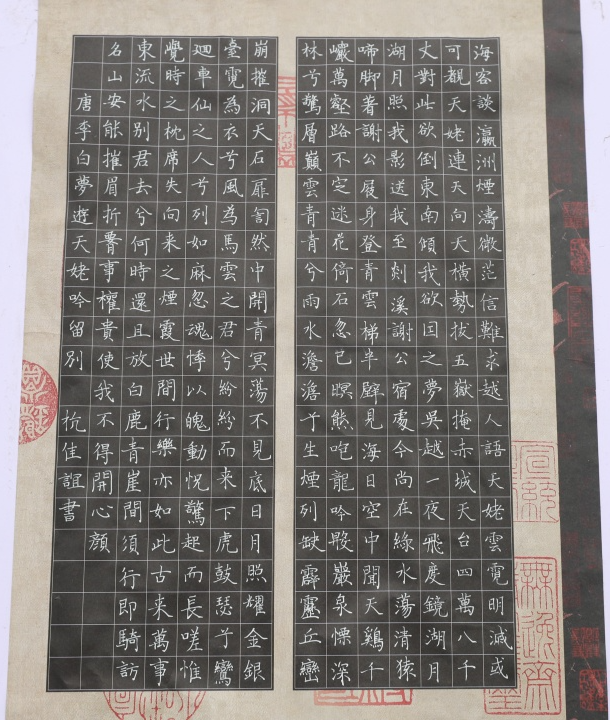 海客談瀛洲煙濤微茫信難求越人語天姥雲霓明滅或
可覩天姥連天向天橫勢拔五嶽掩赤城天台四萬八千
丈對此欲倒東南傾我欲囙之夢吳越一夜飛度鏡湖月
湖月照我影送我至剡溪謝公宿處今尚在綠水蕩清猿
啼脚著謝公屐身登青雲梯半壁見海日空中聞天鷄千
巖萬壑路不定迷花倚石忽已暝熊咆龍吟殷巖泉慄深
林兮驚層巔雲青青兮雨水澹澹兮生煙列缺霹靂丘巒
崩摧洞天石扉訇然中開青冥蕩不見底日月照耀金銀
臺霓為衣兮風為馬雲之君兮紛紛而来下虎鼓瑟兮鸞
迴車仙之人兮列如麻忽魂悸以魄動怳驚起而長嗟惟
覺時之枕席失向来之煙霞世間行樂亦如此古来萬事
東流水别君去兮何時還且放白鹿青崖間須行即騎訪
名山安能摧眉折腰事權貴使我不得開心顏
唐李白夢遊天姥吟留別 杭佳誼書